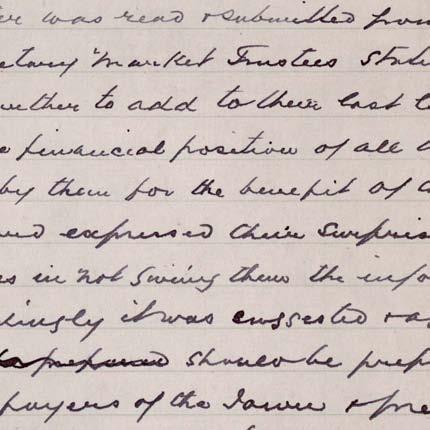 er was read & submitted from
etary Market Trustees stati
further to add to their last l
e financial position of all
by them for the benefit of
and expressed their surpris
es in not giving them the info
dingly it was suggested & a
prepared should be prep
payers of the Town & pre